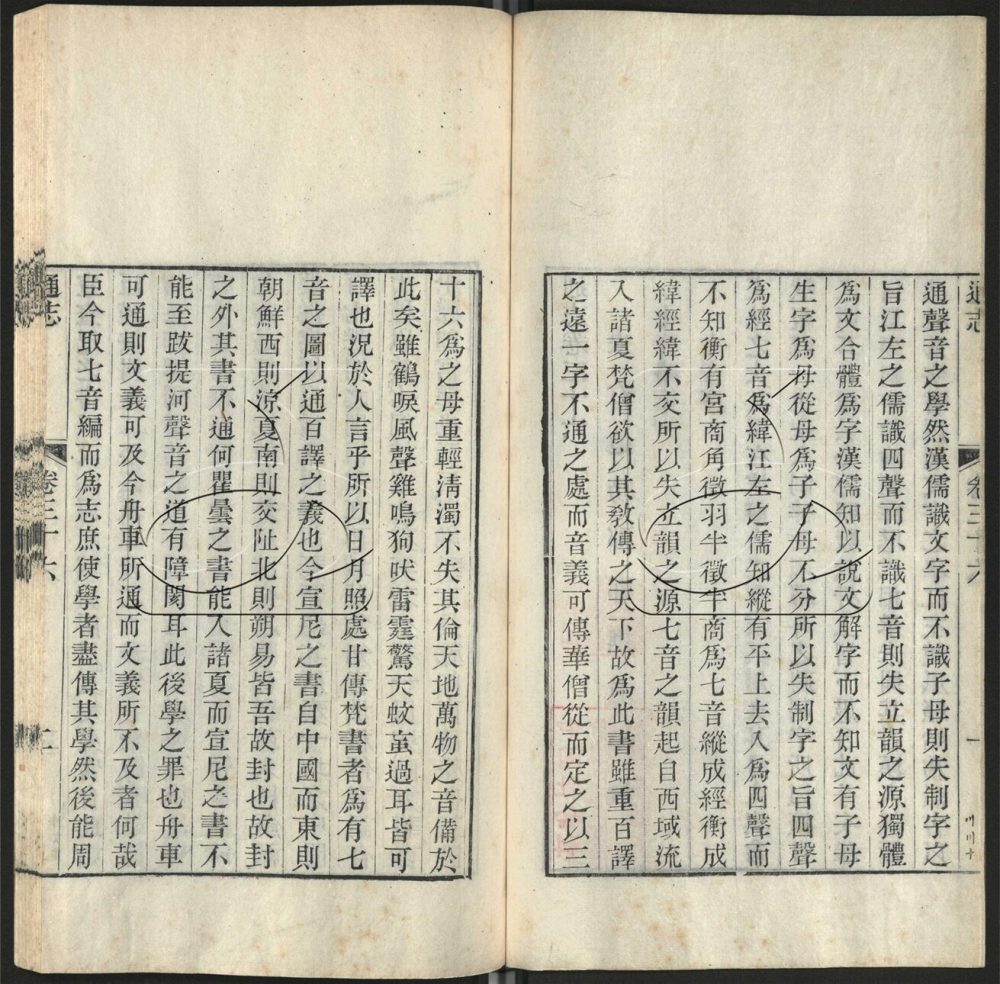 通志
卷三十六
一
通聲音之學然漢儒識文字而不識子母則失制字之
旨江左之儒識四聲而不識七音則失立韻之源獨體
爲文合體爲字漢儒知以說文解字而不知文有子母
生字爲母從母爲子子母不分所以失制字之旨四聲
爲經七音爲緯江左之儒知縱有平上去入爲四聲而
不知衡有宮商角徵羽半徵半商爲七音縱成經衡成
緯經緯不交所以失立韻之源七音之韻起自西域流
入諸夏梵僧欲以其敎傳之天下故爲此書雖重百譯
之遠一字不通之處而音義可傳華僧從而定之以三
十六爲之母重輕淸濁不失其倫天地萬物之音備於
此矣雖鶴唳風聲雞鳴狗吠雷霆驚天蚊䖟過耳皆可
譯也況於人言乎所以日月照處甘傳梵書者爲有七
音之圖以通百譯之義也今宣尼之書自中國而東則
朝鮮西則涼夏南則交阯北則朔易皆吾故封也故封
之外其書不通何瞿曇之書能入諸夏而宣尼之書不
能至跋提河聲音之道有障閡耳此後學之罪也舟車
可通則文義可及今舟車所通而文義所不及者何哉
臣今取七音編而爲志庶使學者盡傳其學然後能周
通志
卷三十六
二